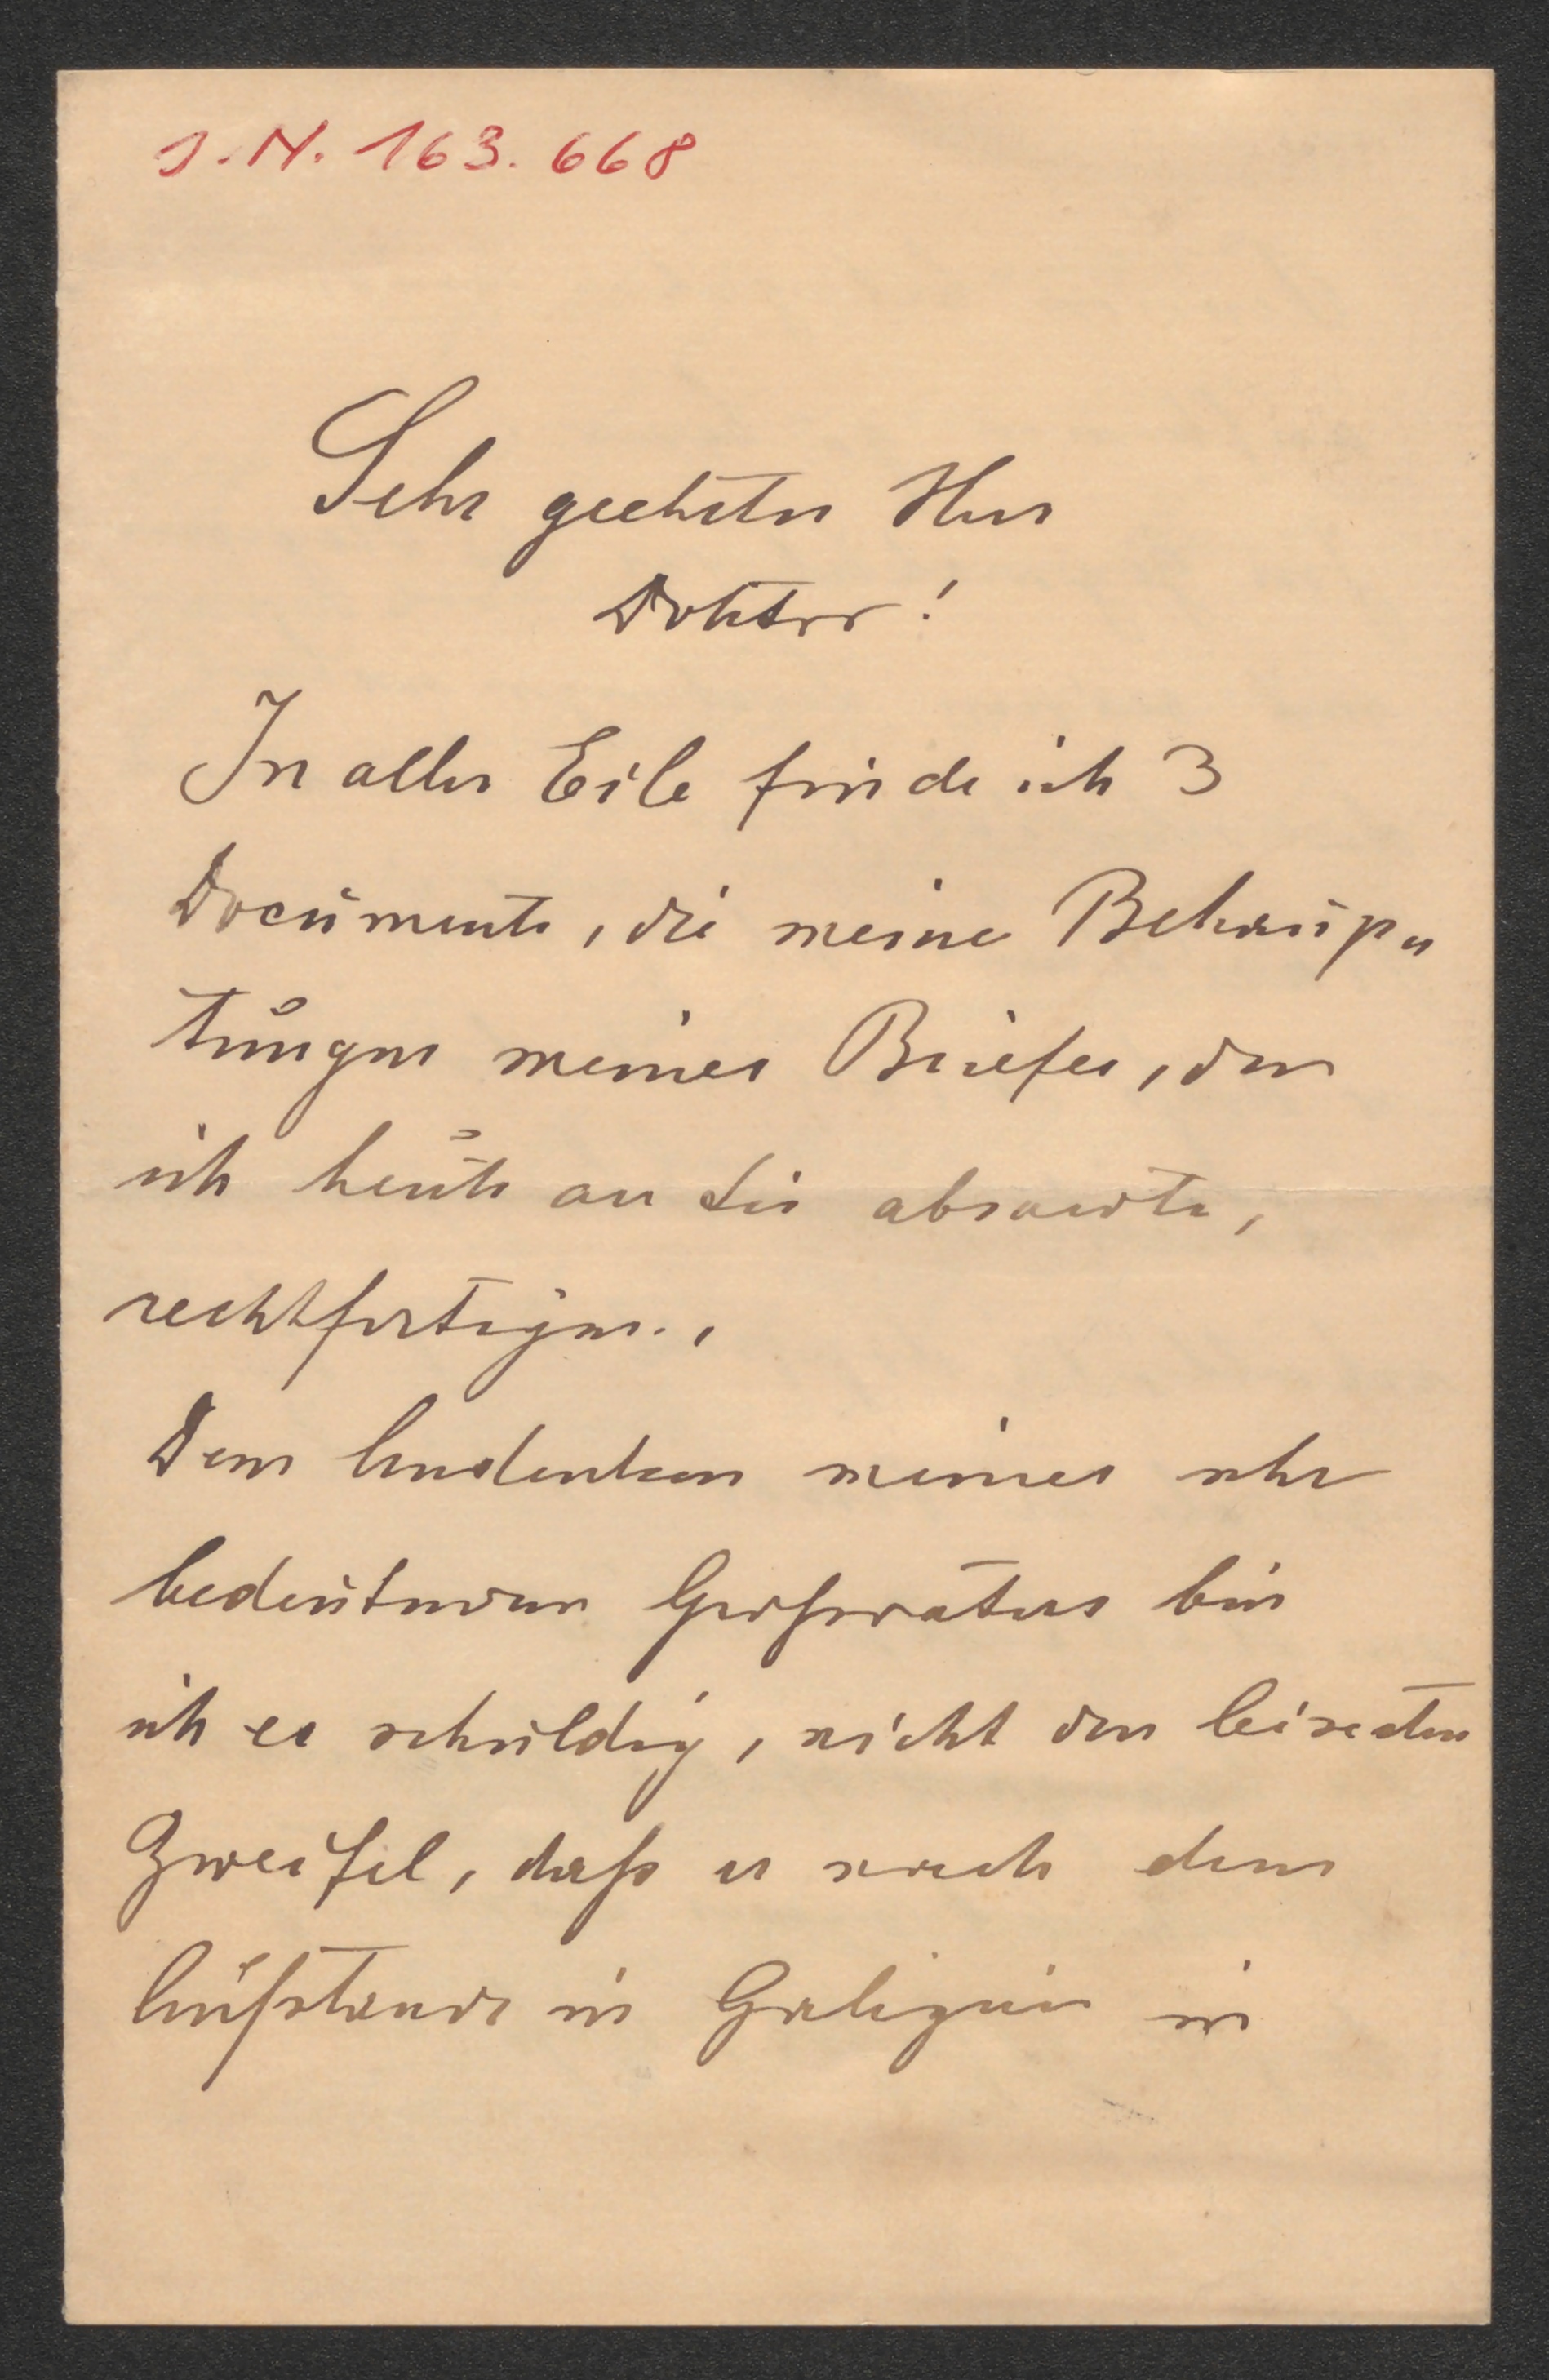 J.N. 163.668
Sehr geehrter Herr
Doktor!
In aller Eile finde ich 3
Documente, die meine Behaup„
tungen meines Briefes, den
ich heute an Sie absandte,
rechtfertigen.,
Dem Andenken meines sehr
bedeutenden Großvaters bin
ich es schuldig, nicht den leisesten
Zweifel, daß er nach dem
Aufstande in Galizien in